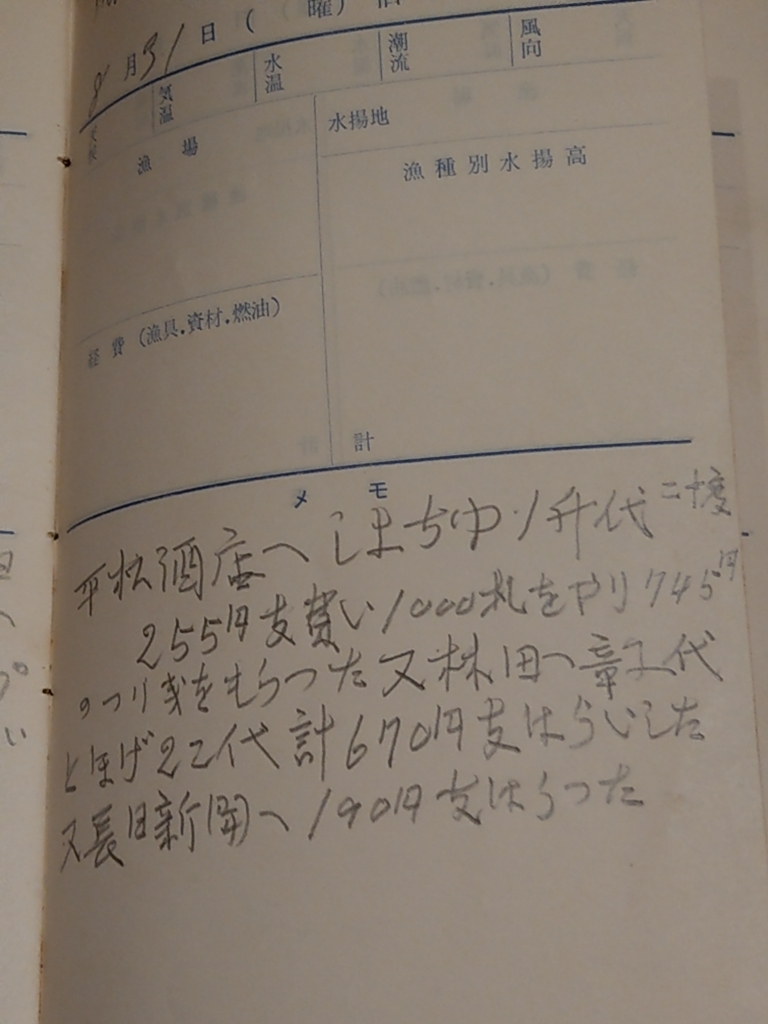 8月31日(曜)
気温 水温 潮流 風向
漁場
水揚地
漁種別水揚高
経費(漁具.資材.燃油)
計
メモ
平松酒店へしまちゆ1升代二十度
255円支費い1000札をやり745円
のつり戋をもらつた又林田へ章二代
とほげ22代計670円支はらいした
又長日新聞へ190円支はらつた